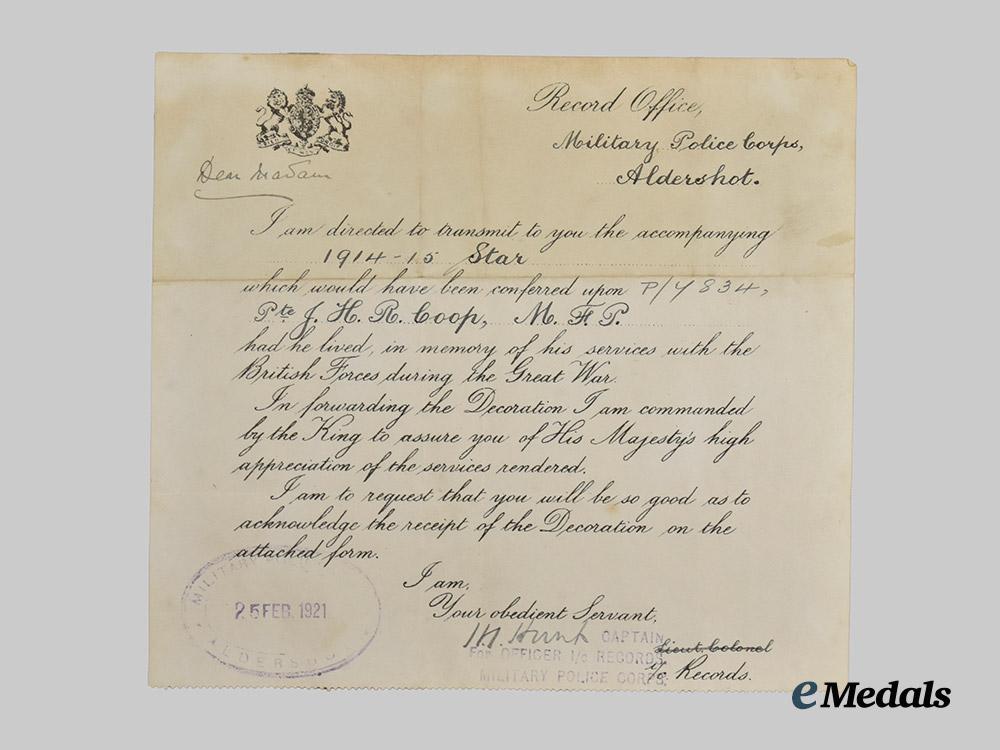 Record Office,
Military Police Corps,
Aldershot.
Dear Madam
I am directed to transmit to you the accompanying
1914-15 Star
which would have been conferred upon P/4834,
Pte J. H. R. Coop, M. F. P.
had he lived, in memory of his services with the
British Forces during the Great War.
In forwarding the Decoration I am commanded
by the King to assure you of His Majesty's high
appreciation of the services rendered.
I am to request that you will be so good as to
acknowledge the receipt of the Decoration on the
attached form.
I am,
Your obedient Servant,
Hunt CAPTAIN
Lieut. Colonel
FOR OFFICER I/c RECORDS
i/c Records.
MILITARY POLICE CORPS.
MILITARY
25 FEB. 1921
ALDERSHO
eMedals